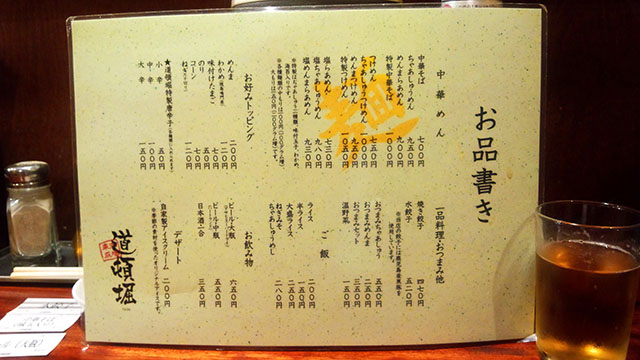 お品書き
中華めん
中華そば 七〇〇円
ちゃあしゅうめん 九五〇円
めんまらあめん 九〇〇円
特製中華そば 一〇〇〇円
つけめん 七五〇円
ちゃあしゅうつけめん 一〇〇〇円
めんまつけめん 九五〇円
特製つけめん 一〇五〇円
塩らあめん 七三〇円
塩ちゃあしゅうめん 九八〇円
塩めんまらあめん 九三〇円
麺
お好みトッピング
めんま 二〇〇円
わかめ
味付けたまご 一〇〇円
のり
コーン 七〇円
ねぎ 一二〇円
★道頓堀特製唐辛子
小辛 五〇円
中辛 一〇〇円
大辛 一五〇円
一品料理・おつまみ他
焼き餃子 四七〇円
水餃子 五二〇円
※当店の餃子には鹿児島産黒豚を
使用しています。
おつまみちゃあしゅう
おつまみめんま
おつまみセット 五五〇円
温野菜 三五〇円
ご飯
ライス 二〇〇円
半ライス 一五〇円
大盛ライス
ねぎみそ
ちゃあしゅうめし 二八〇円
お飲み物
ビール大瓶 六五〇円
ビール中瓶 五五〇円
日本酒一合 三五〇円
デザート
自家製アイスクリーム 二〇〇円
※季節の素材を使ったオリジナルアイスです。
道頓堀